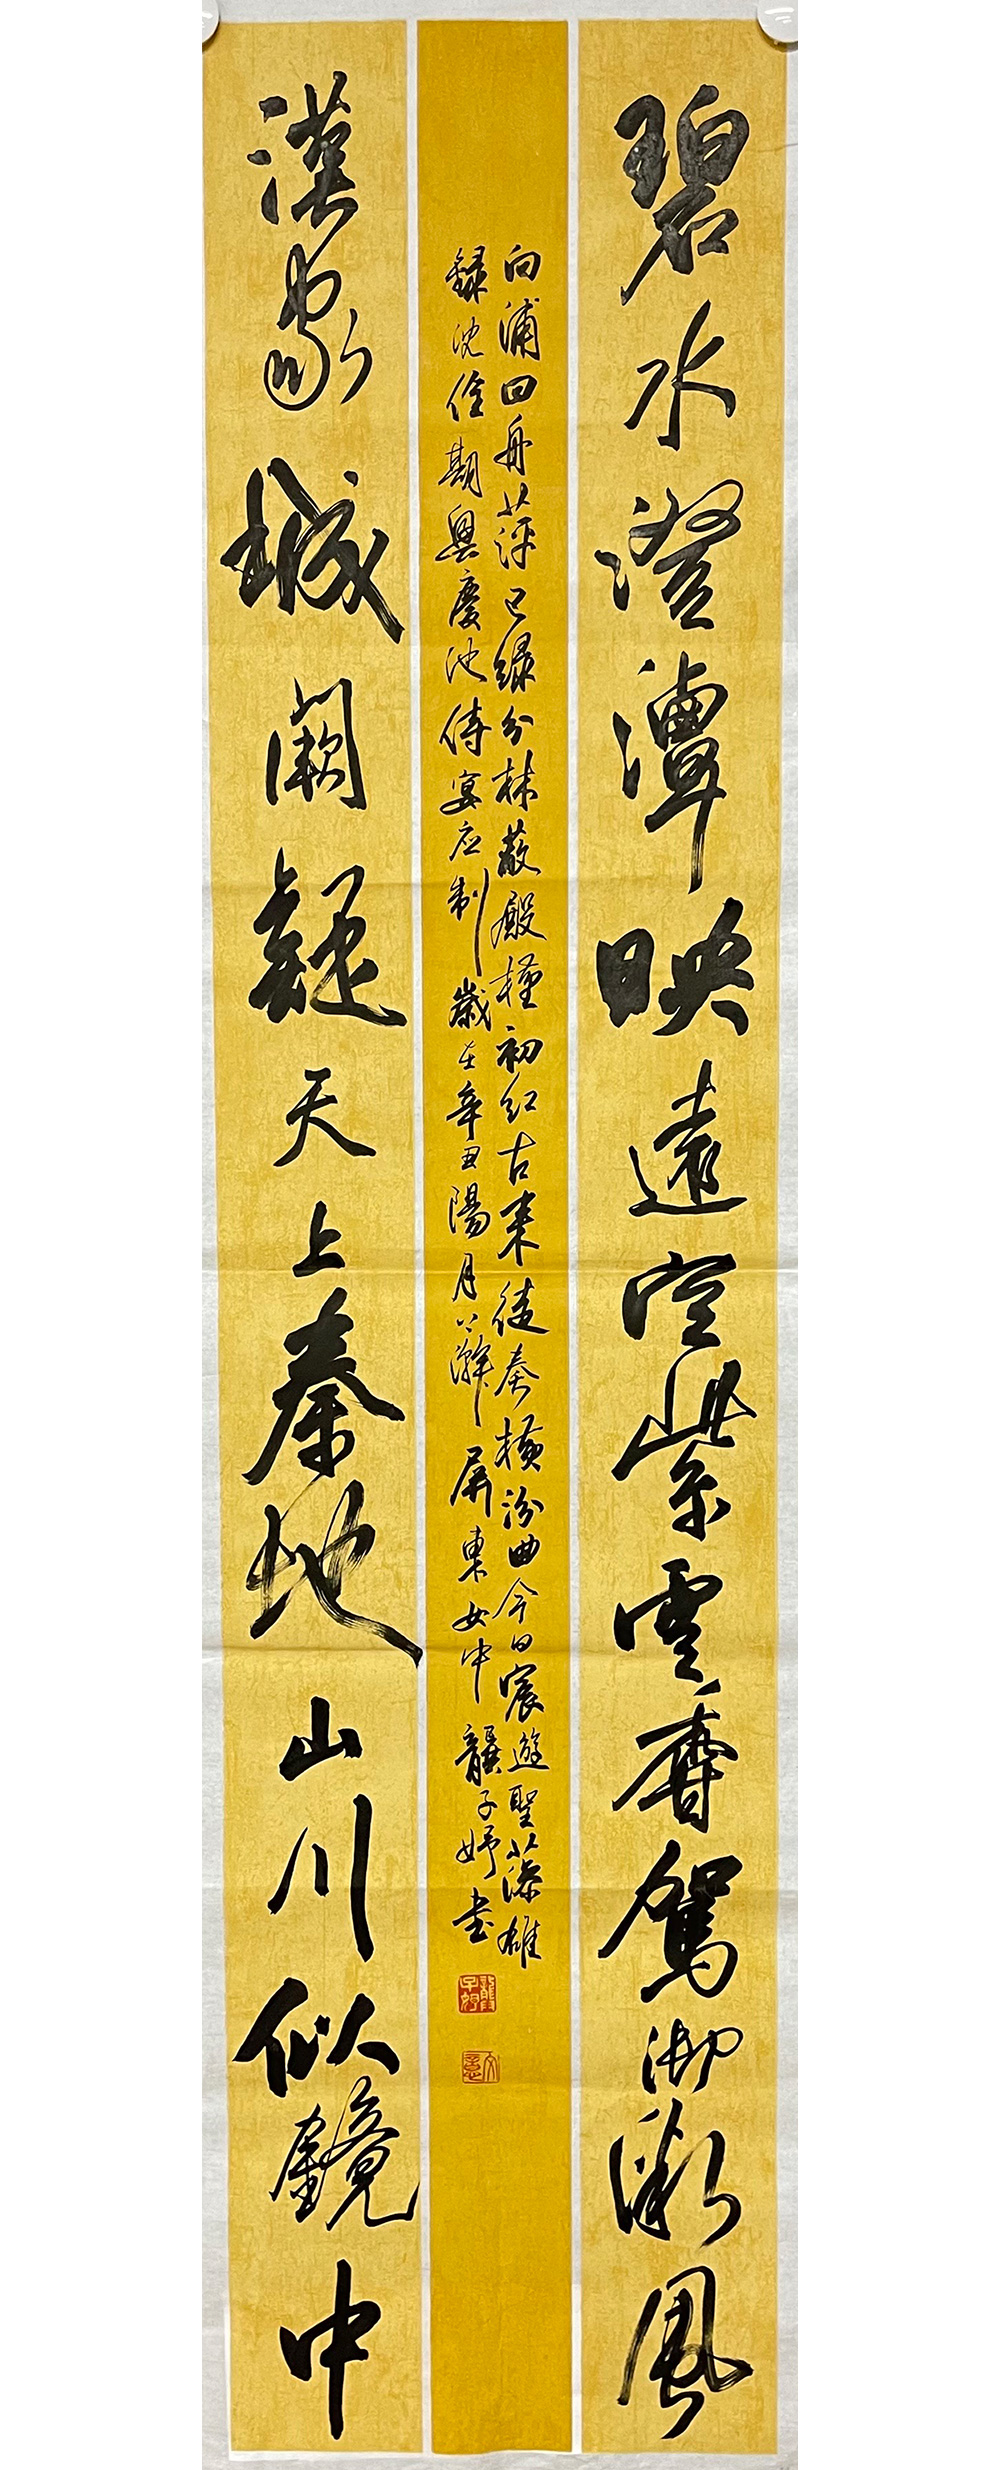 碧水澄潭映遠空紫雲香駕御微風
向浦回舟萍已绿分林蔽殿槿初红古来徒奏横汾曲今日宸遊聖藻雄
録沈佺期興慶池侍宴应制歲在辛丑陽月上澣屏東女中龔子妤书
漢家城闕疑天上秦地山川似鏡中
龔子妤
文意